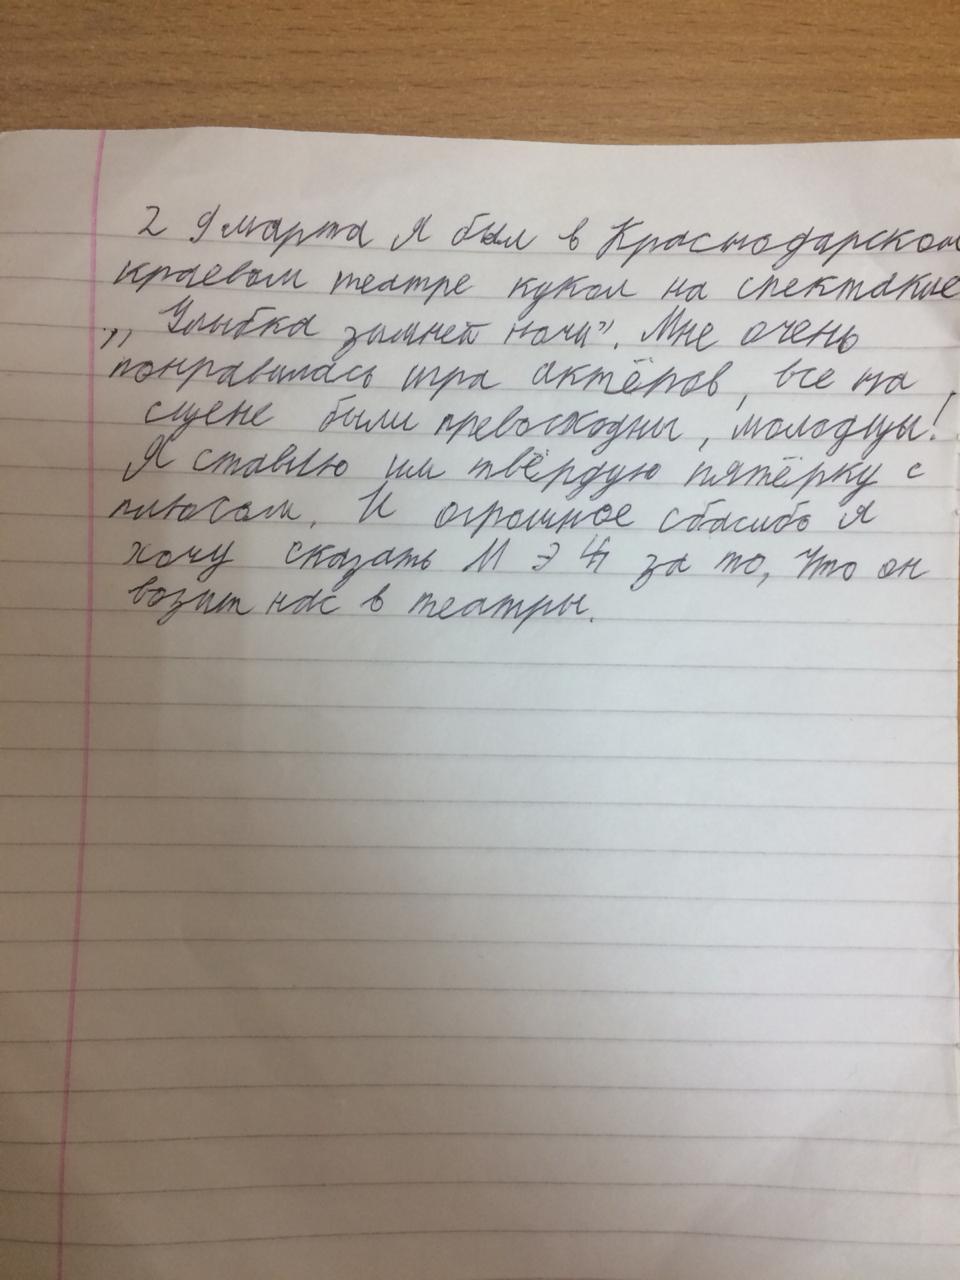 29 марта я был в Краснодарском
краевом театре кукол на спектакле
„Улыбка зимней ночи”. Мне очень
понравилась игра актёров, все на
сцене были превосходны, молодцы!
Я ставлю им твёрдую пятёрку с
плюсом. И огромное спасибо я
хочу сказать М Э Ч за то, что он
возит нас в театры.